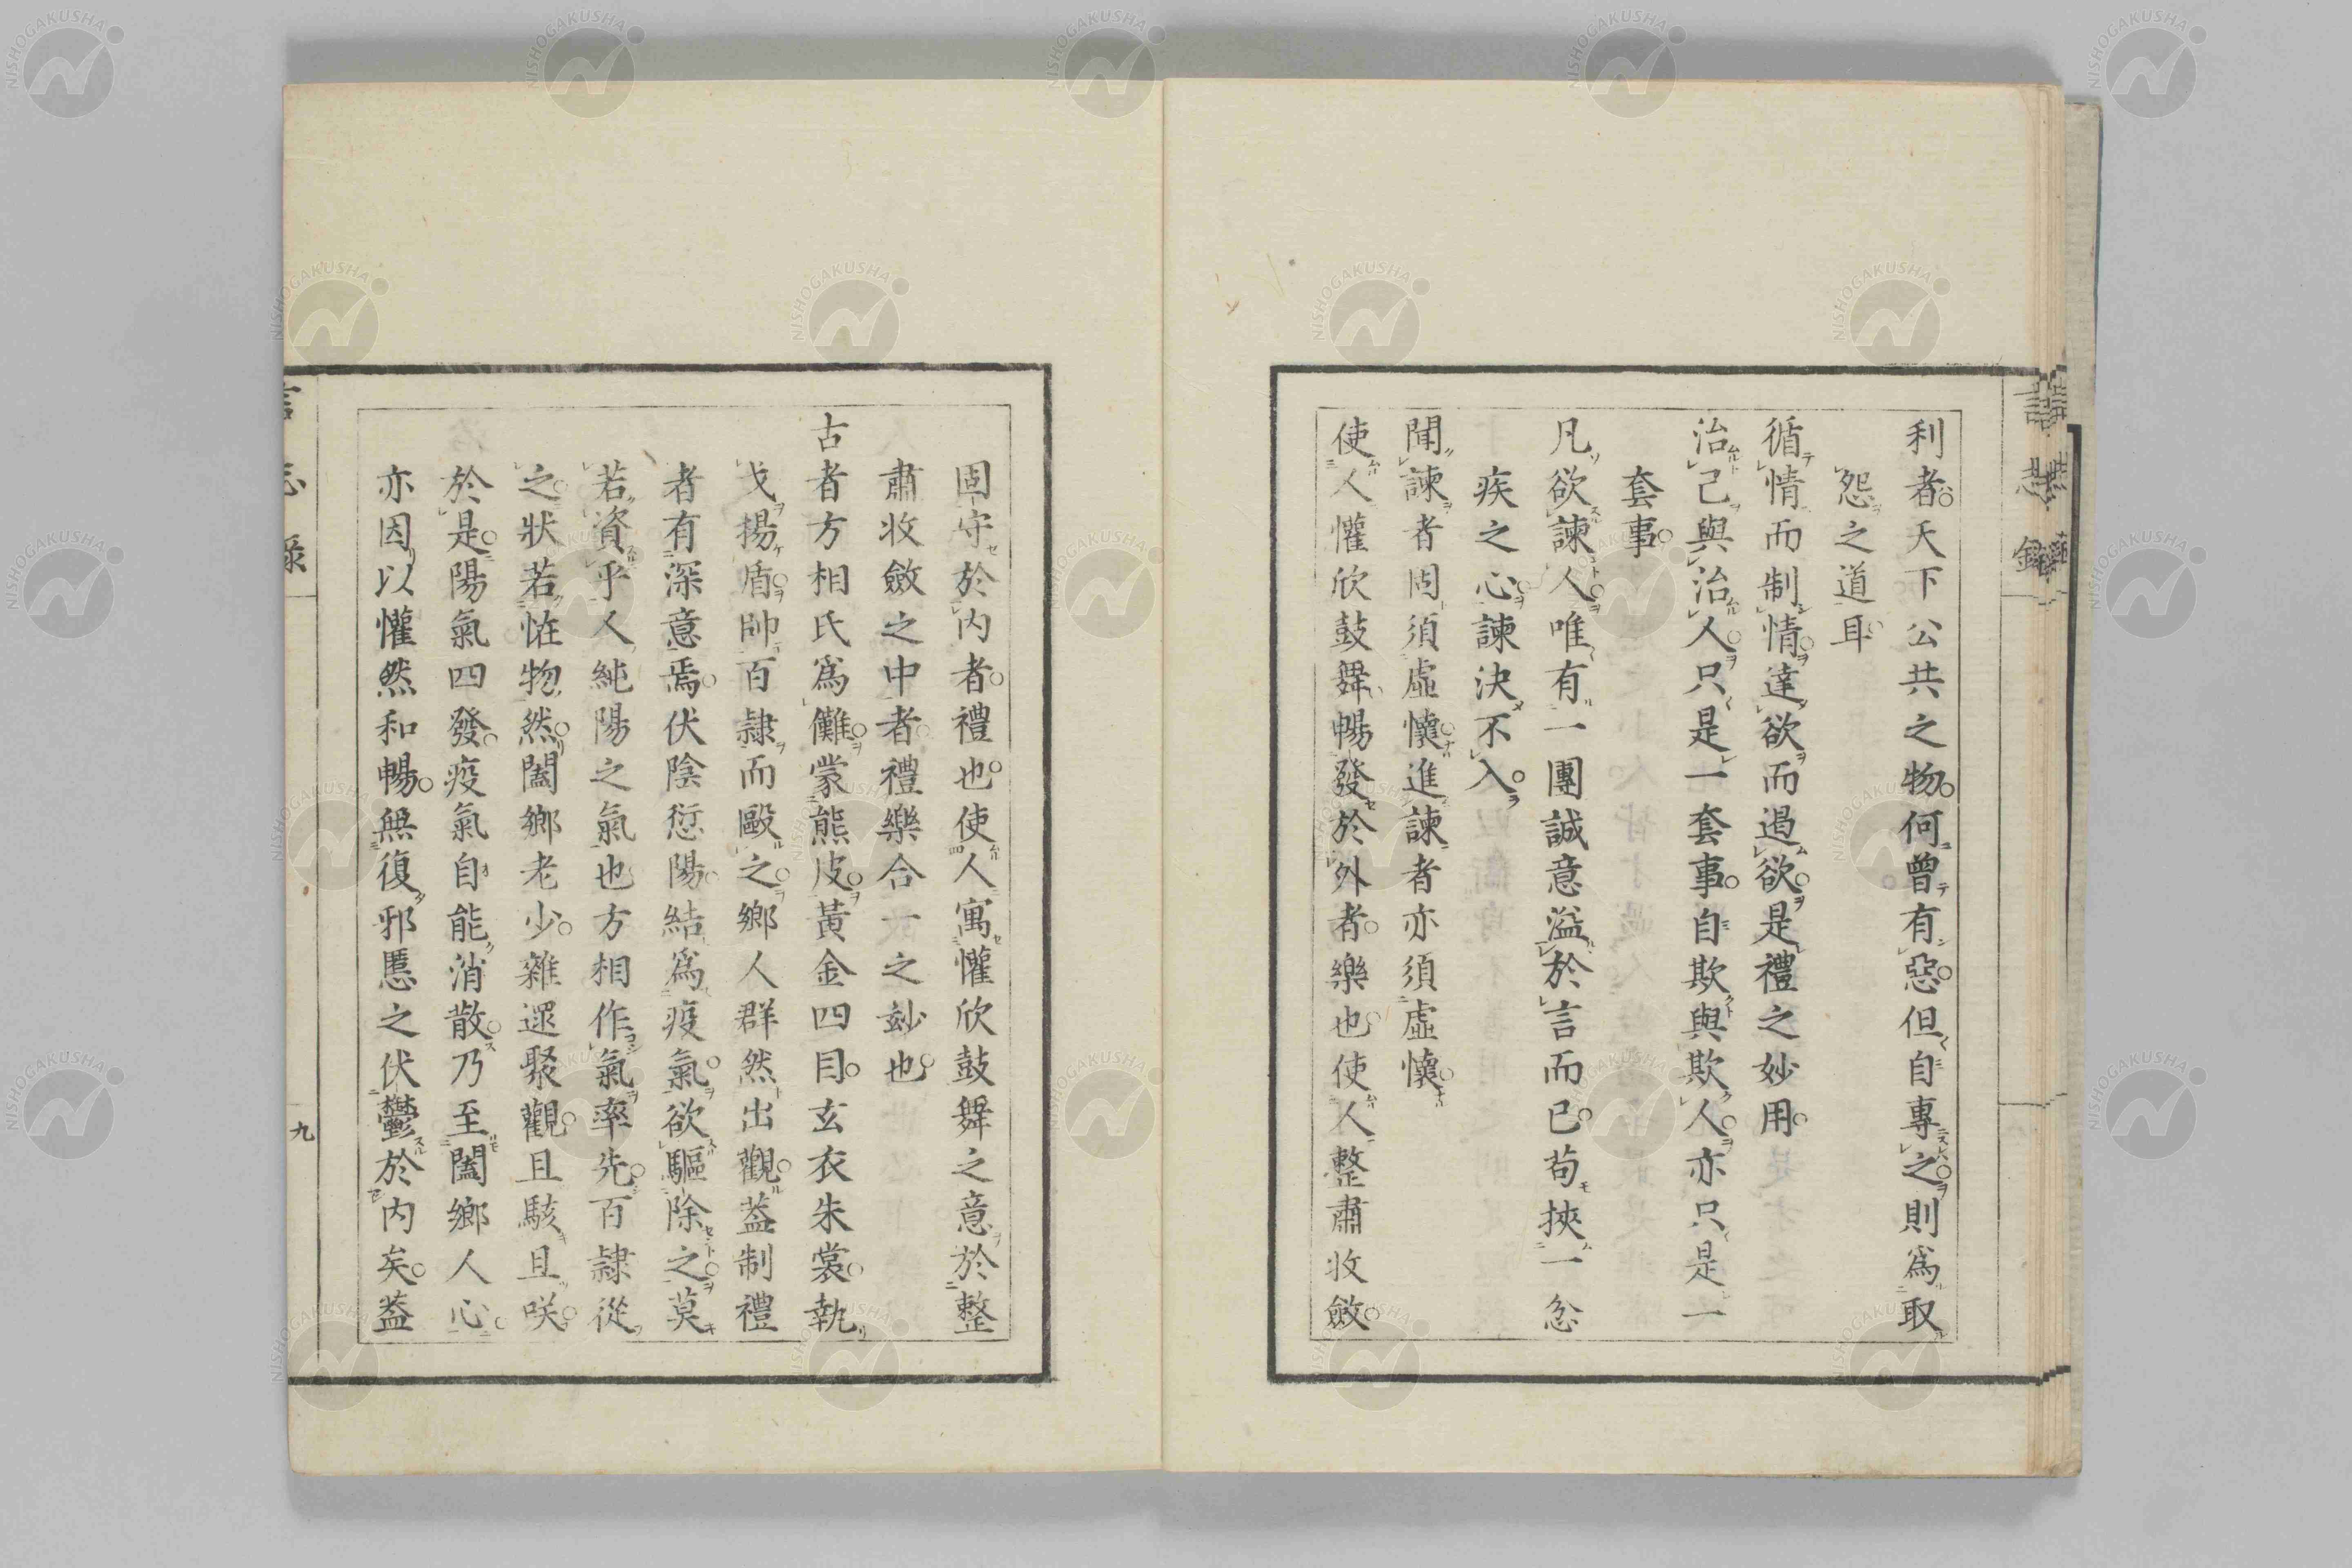 利者天下公共之物何曾有惡但自專之則爲取
怨之道耳
循情而制情達欲而遏欲是禮之妙用
治己與治人只是一套事自欺與欺人亦只是一
套事
凡欲諫人唯有一團誠意溢於言而已苟挾一忿
疾之心諫決不入
聞諫者固須虛懷進諫者亦須虛懷
使人懽欣鼓舞暢發於外者樂也使人整肅收斂
固守於内者禮也使人寓懽欣鼓舞之意於整
肅收斂之中者禮樂合一之玅也
古者方相氏爲儺蒙熊皮黃金四目玄衣朱裳執
戈揚盾帥百隷而毆之鄉人群然出觀蓋制禮
者有深意焉伏陰愆陽結爲疫氣欲驅除之莫
若資乎人純陽之氣也方相作氣率先百隷從
之狀若恠物然闔鄉老少雜遝聚觀且駭且咲
於是陽氣四發疫氣自能消散乃至闔鄉人心
亦因以懽然和暢無復邪慝之伏鬱於内矣蓋
言志録
九
NISHOGAKUSHA